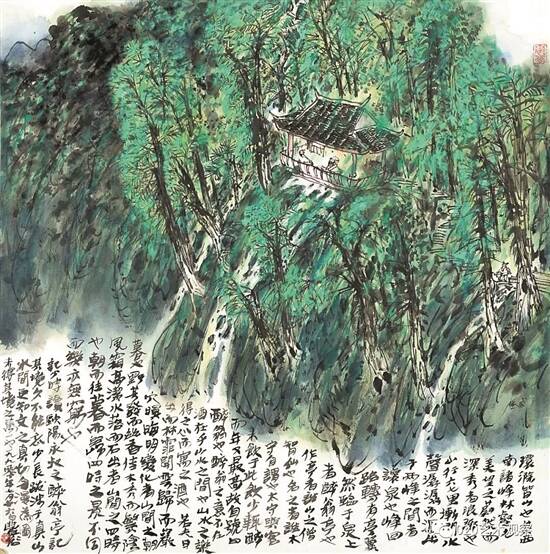 環滁皆山也其西
南諸峰林壑尤
美望之蔚然而
深秀者琅琊也
山行六七里漸聞水
聲潺潺而瀉出
于兩峰之間者
釀泉也峰回
路轉有亭翼
然臨于泉上
者醉翁亭也
作亭者誰山之僧
智仙也名之者誰太
守自謂也太守與客
來飲于此飲少輒醉
而年又最高故自號曰
醉翁也醉翁之意不在
酒在乎山水之間也山水之樂
得之心而寓之酒也若夫日
出而林霏開雲歸而巖
穴暝晦明變化者山間之朝
暮也野芳發而幽香佳木秀而繁陰
風霜高潔水落而石出者山間之四時
也朝而往暮而歸四時之景不同
而樂亦無窮也
兒時讀歐陽永叔之醉翁亭記
其境久不能忘少長跋涉于真山
水間更知文之真